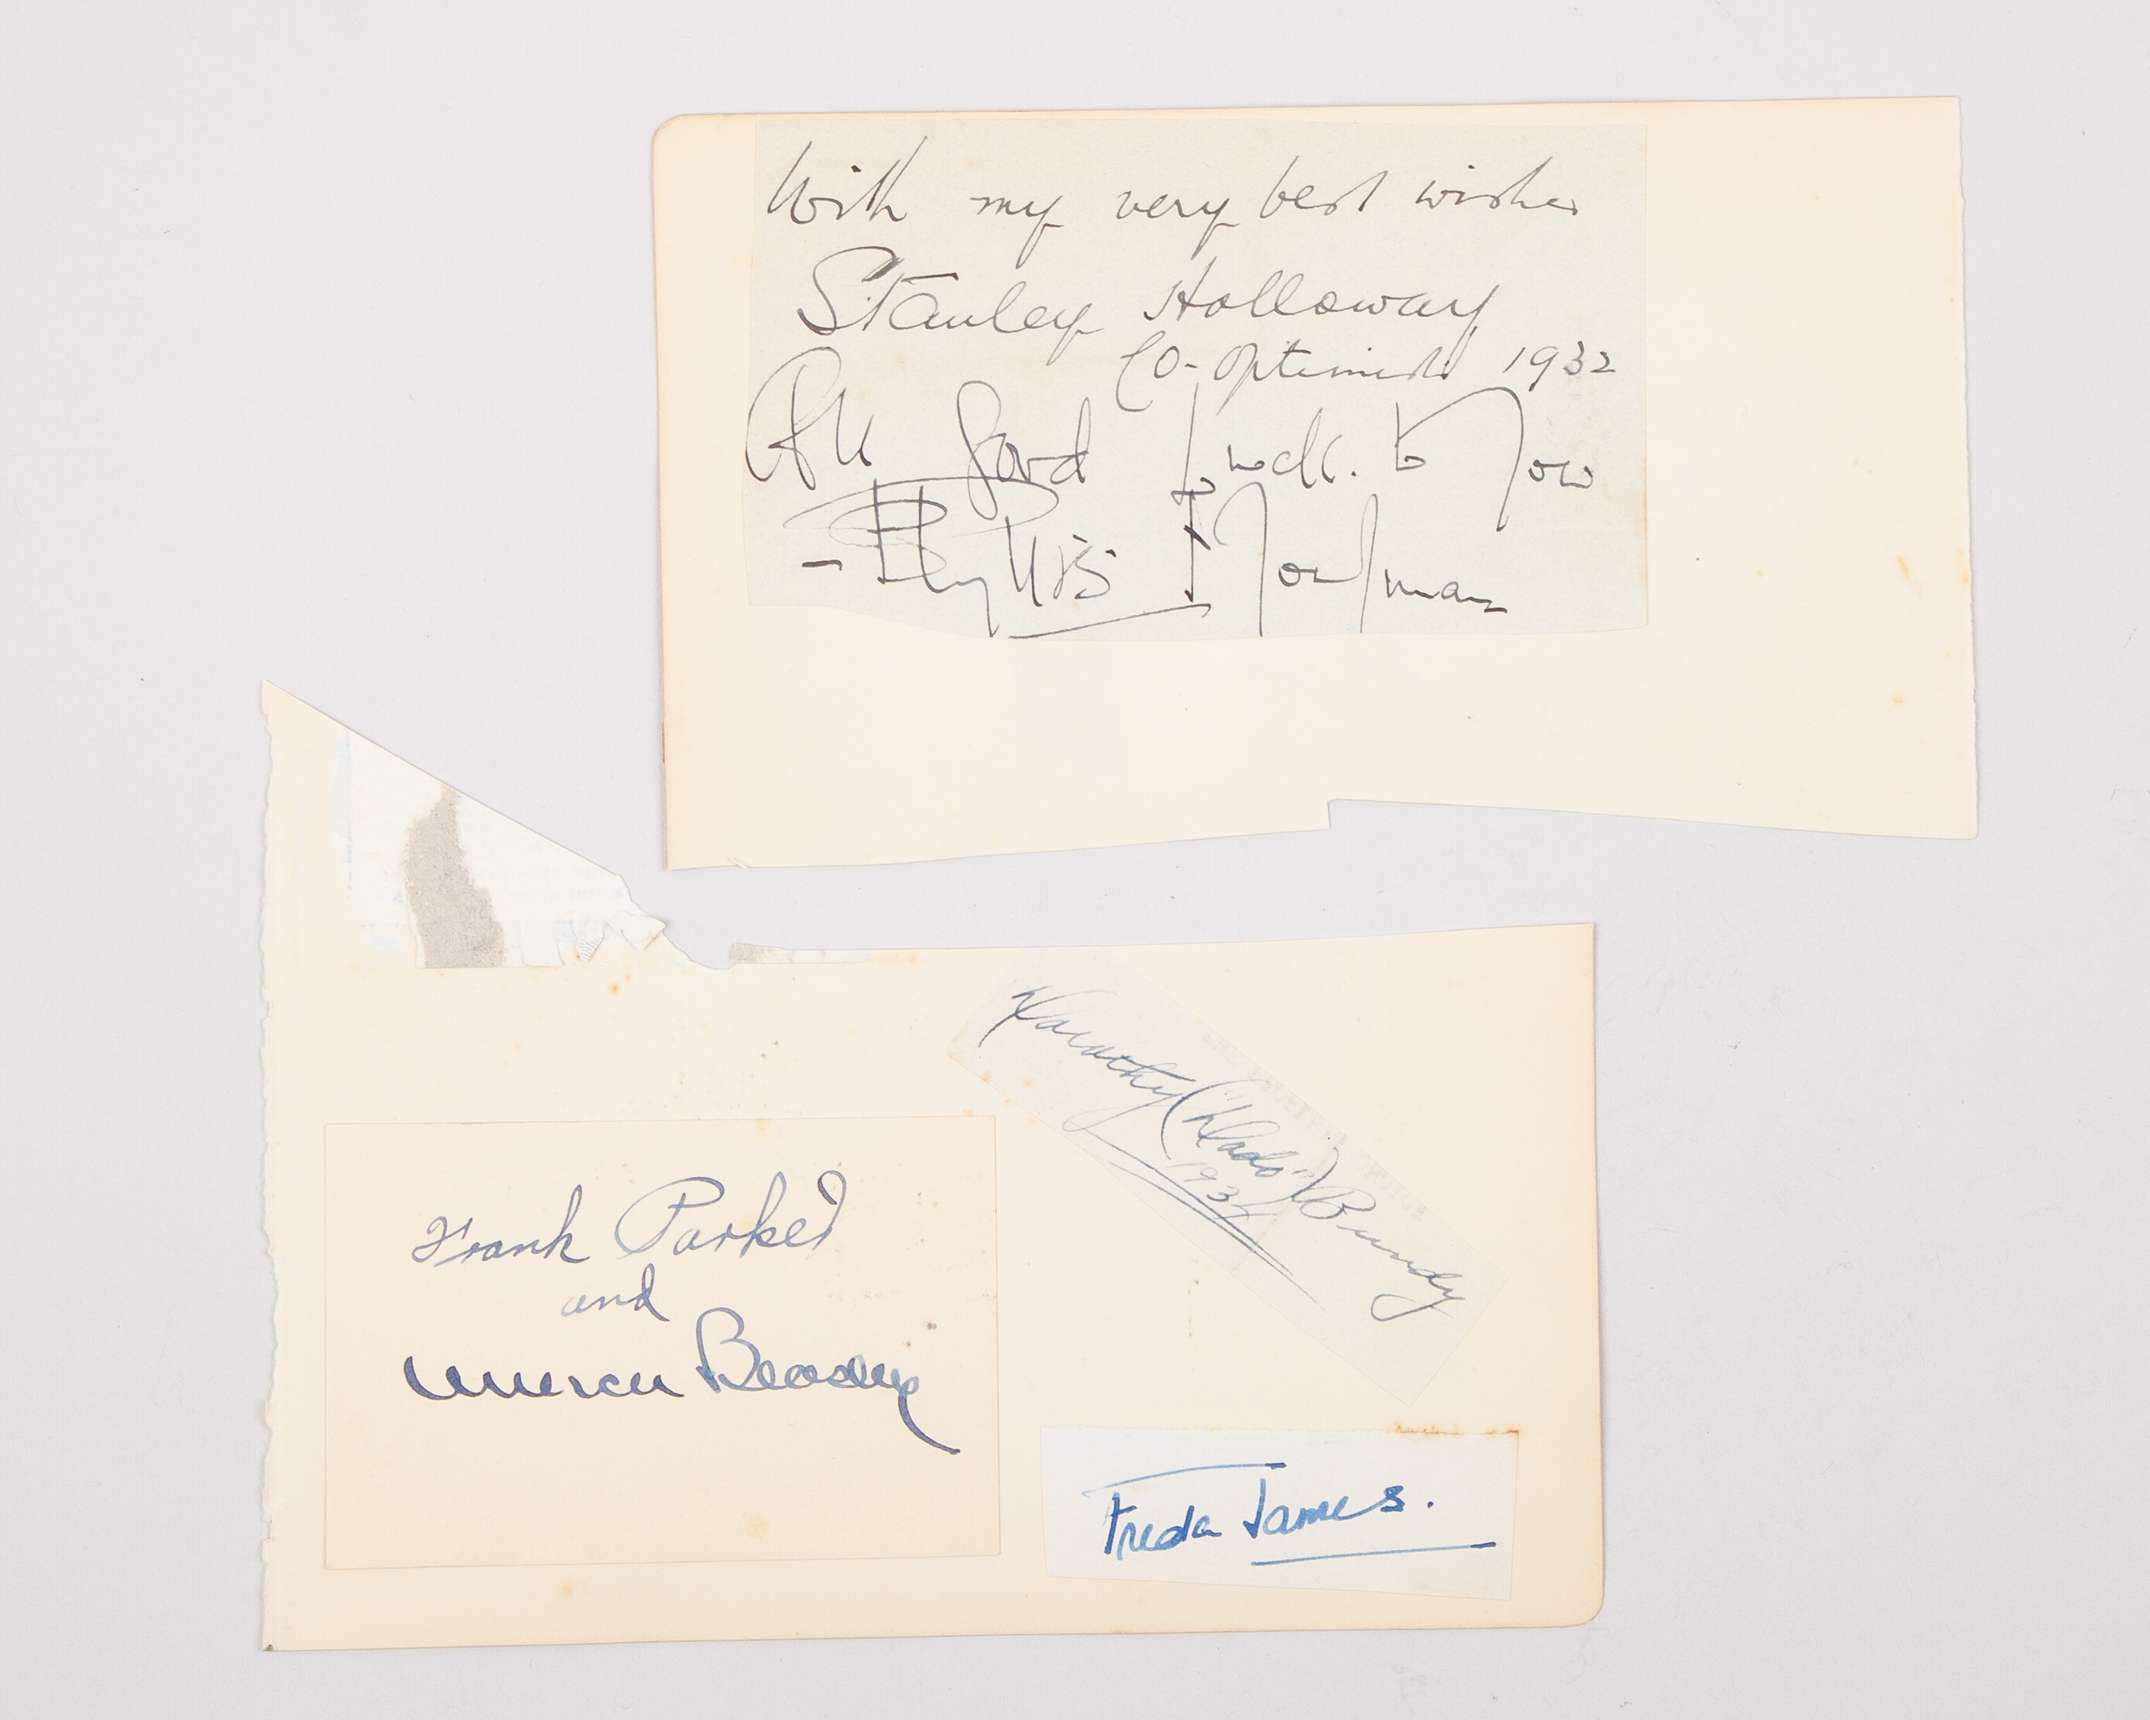 With my very best wishes
Stanley Holloway
Co-Optimists 1932
All Good Luck to You
- Phyllis Monkman
Dorothy ("Dado") Bundy
193
Frank Parker
and
Bradley
Freda James.